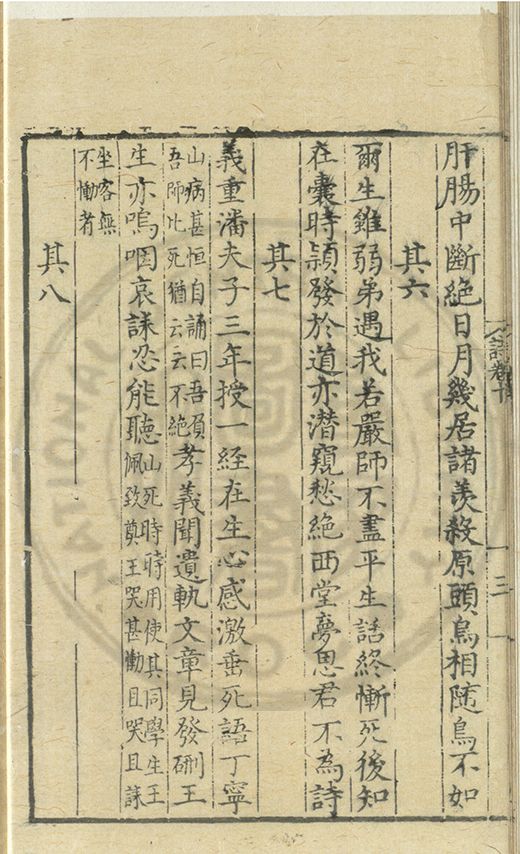 詩卷十
三
肝腸中斷絶日月幾居諸羨殺原頭鳥相随鳥不如
其六
爾生雖弱弟遇我若嚴師不盡平生話終慚死後知
在囊時頴發於道亦潛窺愁絶西堂夢思君不為詩
其七
義重潘夫子三年授一経在生心感激垂死語丁寧
山病甚恒自誦曰吾頋吾師比死猶云云不絶孝義聞遺軌文章見發硎王
生亦嗚咽哀誄忍能聽山死時時用使其同學生王佩致奠王哭甚慟且哭且誄
坐客無不慟者
其八